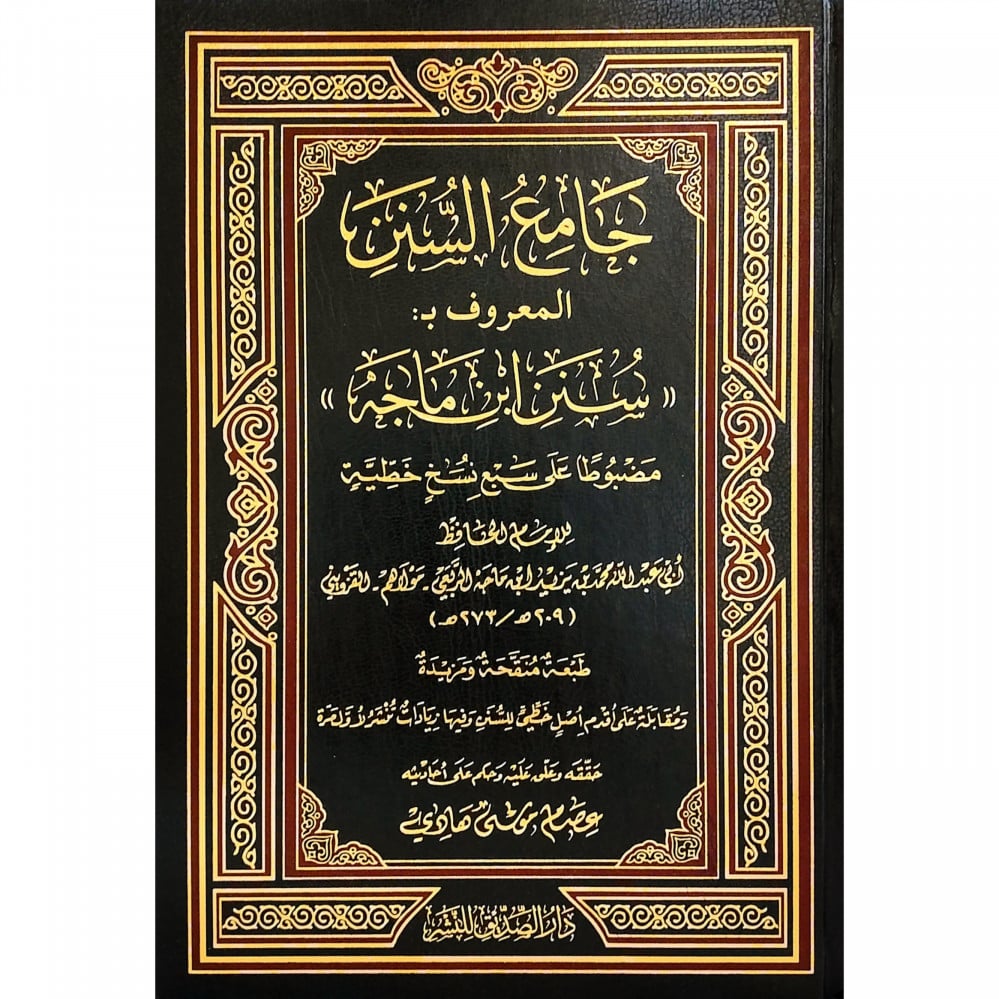 جَامِعُ السُّنَنِ
المعروف بـ:
«سُنَنِ ابْنِ مَاجَهْ»
مَضْبُوطًا عَلَى سَبْعِ نُسَخٍ خَطِّيَّةٍ
لِلإِمَامِ الحَافِظِ
أَبِي عَبْدِ اللهِ مُحَمَّدِ بْنِ يَزِيدَ ابْنِ مَاجَهْ الرَّبَعِيِّ - مَوْلَاهُمْ - القَزْوِينِيِّ
(٢٠٩هـ / ٢٧٣هـ)
طَبْعَةٌ مُنَقَّحَةٌ وَمَزِيدَةٌ
وَمُقَابَلَةٌ عَلَى أَقْدَمِ أَصْلٍ خَطِّيٍّ لِلسُّنَنِ وَفِيهَا زِيَادَاتٌ تُنْشَرُ لِأَوَّلِ مَرَّةٍ
حَقَّقَهُ وَعَلَّقَ عَلَيْهِ وَحَكَمَ عَلَى أَحَادِيثِهِ
عِصَام مُوسَى هَادِي
دَارُ الصِّدِّيقِ لِلنَّشْرِ